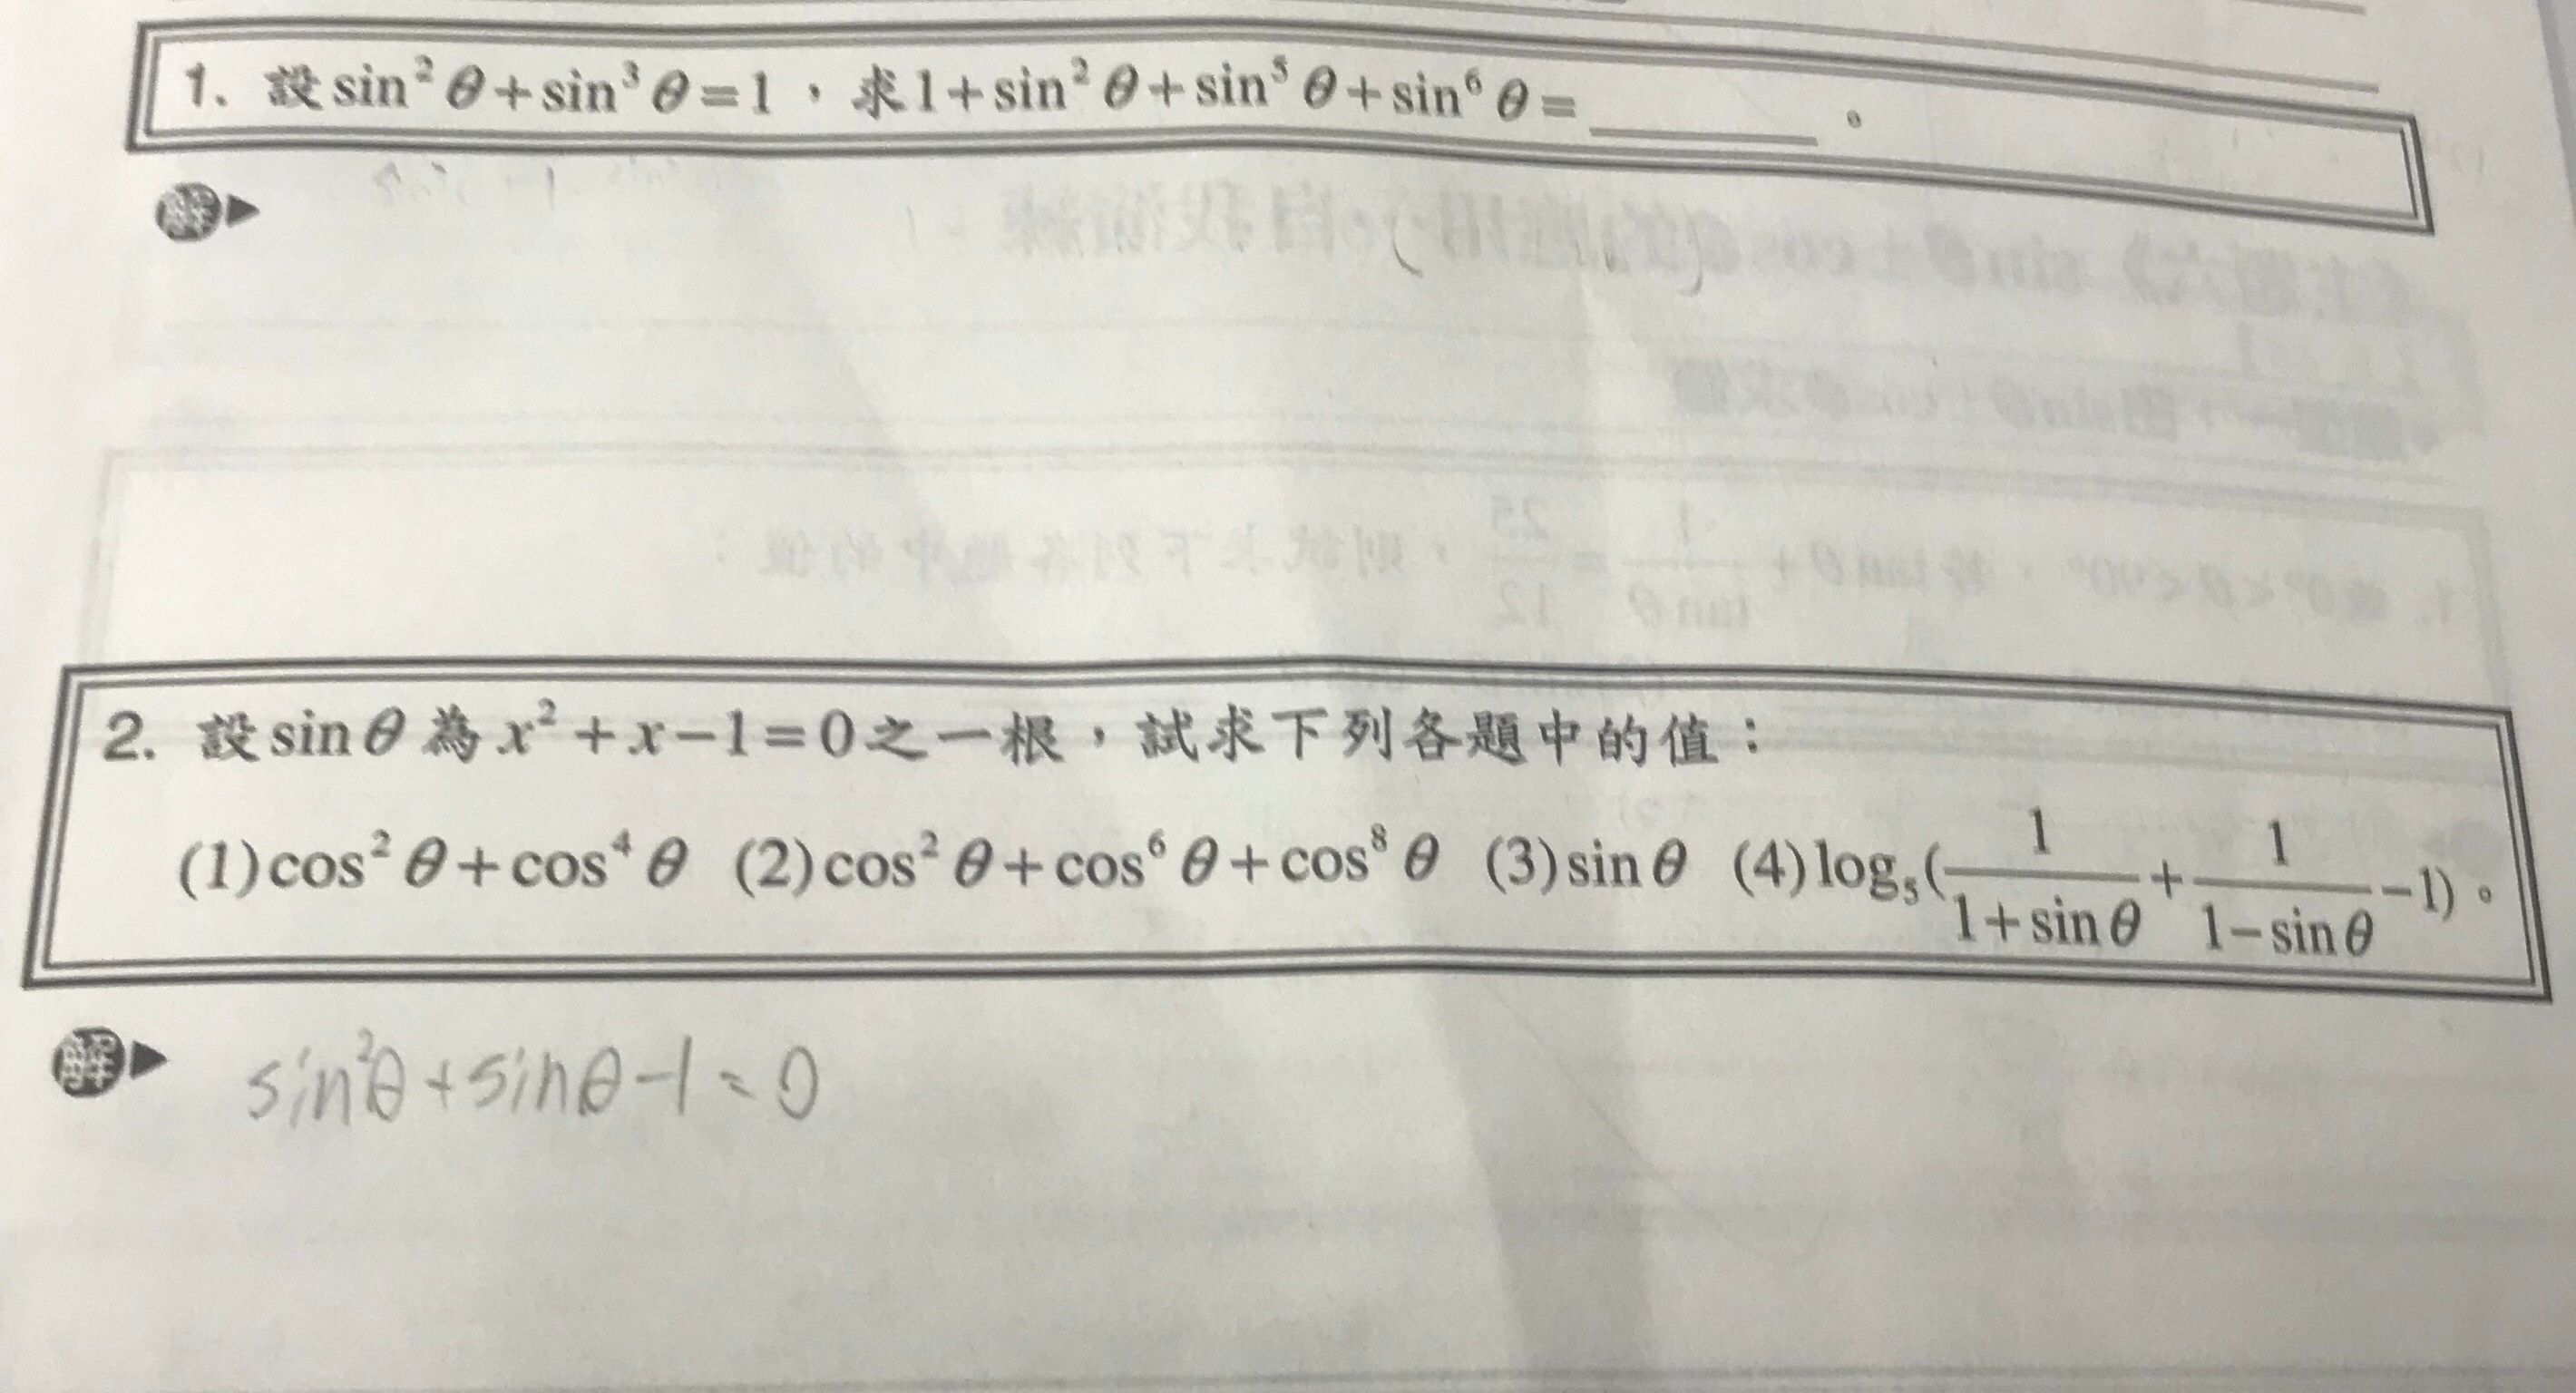 1. 設 sin² θ + sin³ θ = 1，求 1 + sin² θ + sin⁵ θ + sin⁶ θ = ________ 。
解▶
2. 設 sin θ 為 x² + x − 1 = 0 之一根，試求下列各題中的值：
(1) cos² θ + cos⁴ θ (2) cos² θ + cos⁶ θ + cos⁸ θ (3) sin θ (4) log₅(1/(1 + sin θ) + 1/(1 − sin θ) − 1)。
解▶ sin²θ + sinθ − 1 = 0